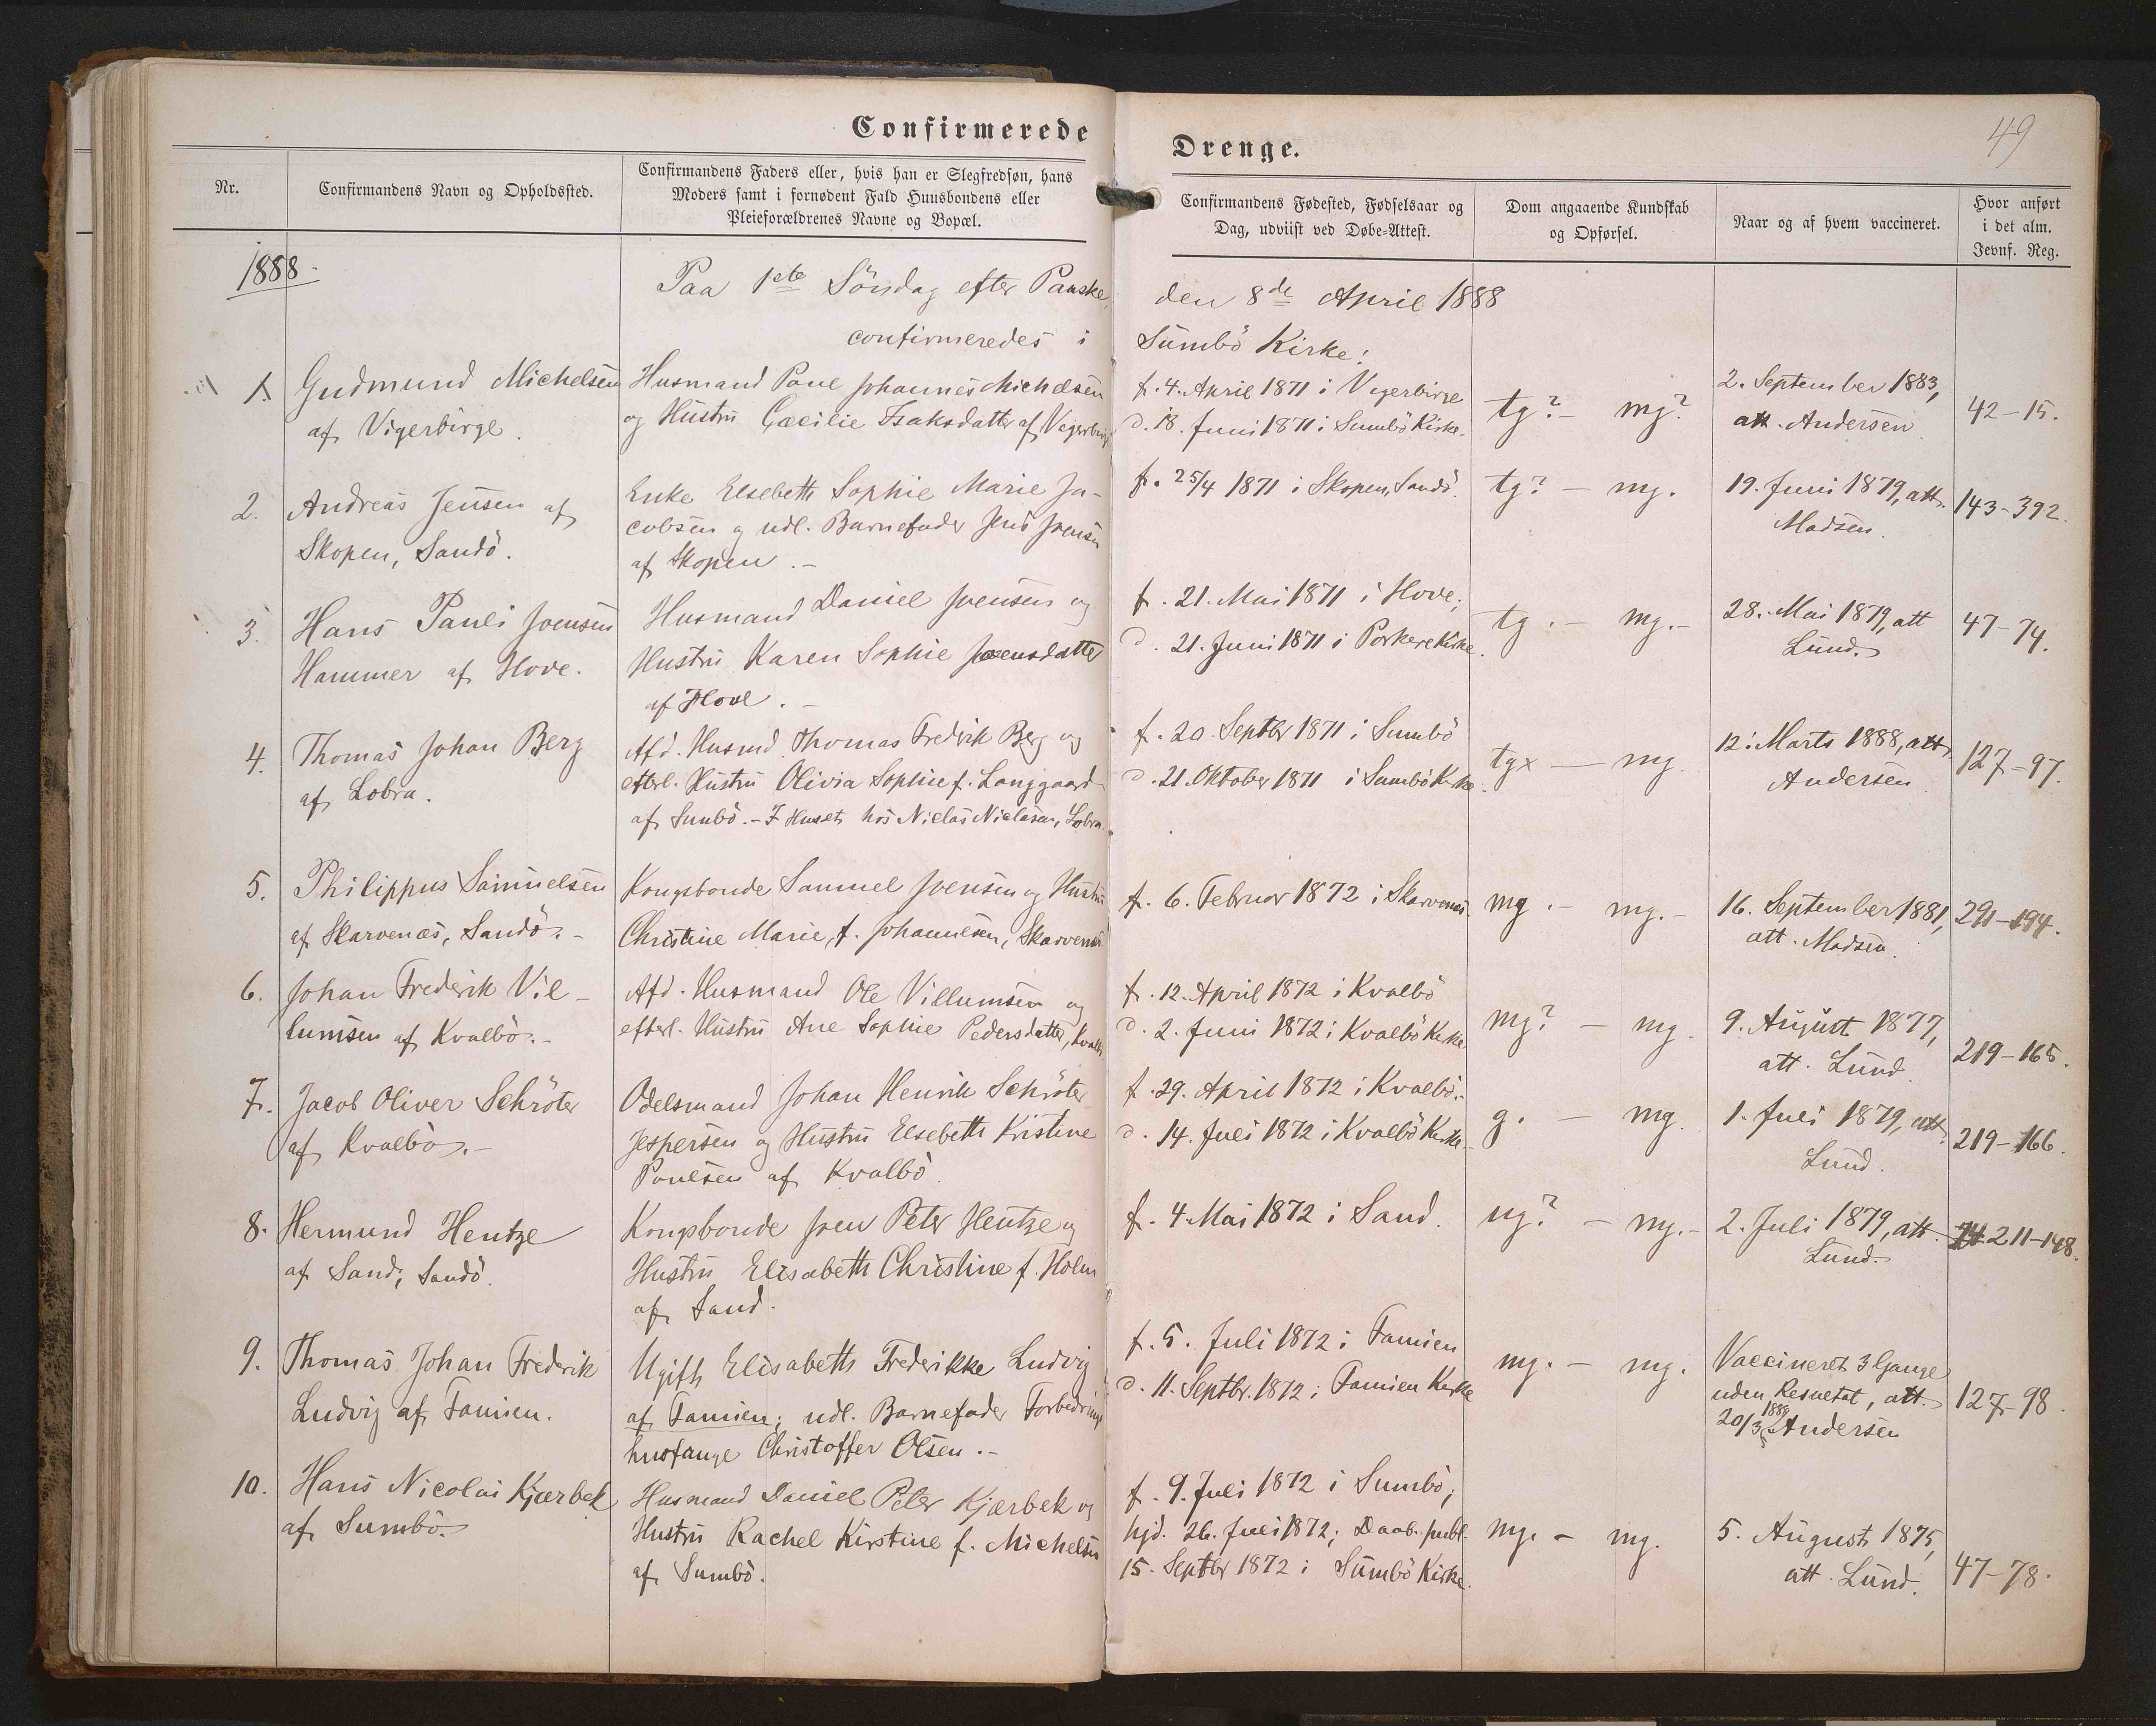 Confirmerede
Drenge.
49
Nr.
Confirmandens Navn og Opholdssted.
Confirmandens Faders eller, hvis han er Slegfredsøn, hans
Moders samt i fornødent Fald Huusbondens eller
Pleieforældrenes Navne og Bopæl.
Confirmandens Fødested, Fødselsaar og
Dag, udviist ved Døbe-Attest.
Dom angaaende Kundskab
og Opførsel.
Naar og af hvem vaccineret.
Hvor anført
i det alm.
Jevnf. Reg.
1888.
Paa 1ste Söndag efter Paaske
den 8de April 1888
confirmeredes i
Sumbö Kirke:
1.
Gudmund Michelsen
af Vigerbirge.
Husmand Poul Johannes Michelsen
og Hustru Cæcilie Isaksdatter af Vigerbirge
f. 4. April 1871 i Vigerbirge
d. 18. Juni 1871 i Sumbö Kirke.
tg? - mg?
2. September 1883,
att. Andersen
42-15.
2.
Andreas Jensen af
Skopen, Sandö.
Enke Elsebeth Sophie Marie Ja-
cobsen og udl. Barnefader Jens Joensen
af Skopen.-
f. 25/4 1871 i Skopen, Sandö.
tg? - mg.
19. Juni 1879, att.
Madsen.
143-392.
3.
Hans Pauli Joensen
Hammer af Hove.
Husmand Daniel Joensen og
Hustru Karen Sophie Joensdatter
af Hove.-
f. 21. Mai 1871 i Hove;
d. 21. Juni 1871 i Porkere Kirke.
tg. - mg.-
28. Mai 1879, att
Lund.
47-74.
4.
Thomas Johan Berg
af Lobra.
Afd. Husmd. Thomas Fredrik Berg og
efterl. Hustru Olivia Sophie f. Langgaard
af Sumbö.- I Huset hos Niclas Niclasen, Lobra.
f. 20. Septbr 1871 i Sumbö
d. 21. Oktober 1871 i Sumbö Kirke.
tgx - mg.
12. Marts 1888, att.
Andersen
127-97.
5.
Philippus Samuelsen
af Skarvenæs, Sandö.-
Kongsbonde Samuel Joensen og Hustru
Christine Marie, f. Johannesen, Skarvenæs
f. 6. Februar 1872 i Skarvenæs.
mg. - mg.-
16. September 1881,
att. Madsen.
291-194.
6.
Johan Frederik Vil-
lumsen af Kvalbö.-
Afd. Husmand Ole Villumsen og
efterl. Hustru Ane Sophie Pedersdatter, Kvalbö
f. 12. April 1872 i Kvalbö
d. 2. Juni 1872 i Kvalbö Kirke.
mg? - mg.
9. August 1877,
att. Lund.
219-165.
7.
Jacob Oliver Schröter
af Kvalbö.-
Odelsmand Johan Henrik Schröter
Jespersen og Hustru Elsebeth Kristine
Poulsen af Kvalbö.
f. 29. April 1872 i Kvalbö.-
d. 14. Juli 1872 i Kvalbö Kirke.
g. - mg.
1. Juli 1879, att.
Lund.
219-166.
8.
Hermund Hentze
af Sand, Sandö.
Kongsbonde Joen Peter Hentze og
Hustru Elisabeth Christine f. Holm
af Sand.
f. 4. Mai 1872 i Sand.
ug? - mg.-
2. Juli 1879, att.
Lund.
211-148.
9.
Thomas Johan Frederik
Ludvig af Famien.
Ugift Elisabeth Frederikke Ludvig
af Famien; udl. Barnefader Forbedrings
husfange Christoffer Olsen.-
f. 5. Juli 1872 i Famien
d. 11. Septbr. 1872 i Famien Kirke
mg. - mg.
Vaccineret 3 Gange
uden Resultat, att.
20/3 1888 Andersen
127-98.
10.
Hans Nicolai Kjærbek
af Sumbö.
Husmand Daniel Peter Kjærbek og
Hustru Rachel Kirstine f. Michelsen
af Sumbö.
f. 9. Juli 1872 i Sumbö;
hjd. 26. Juli 1872; Daab. publ.
15. Septbr 1872 i Sumbö Kirke.
mg. - mg.
5. August 1875,
att. Lund.
47-78.